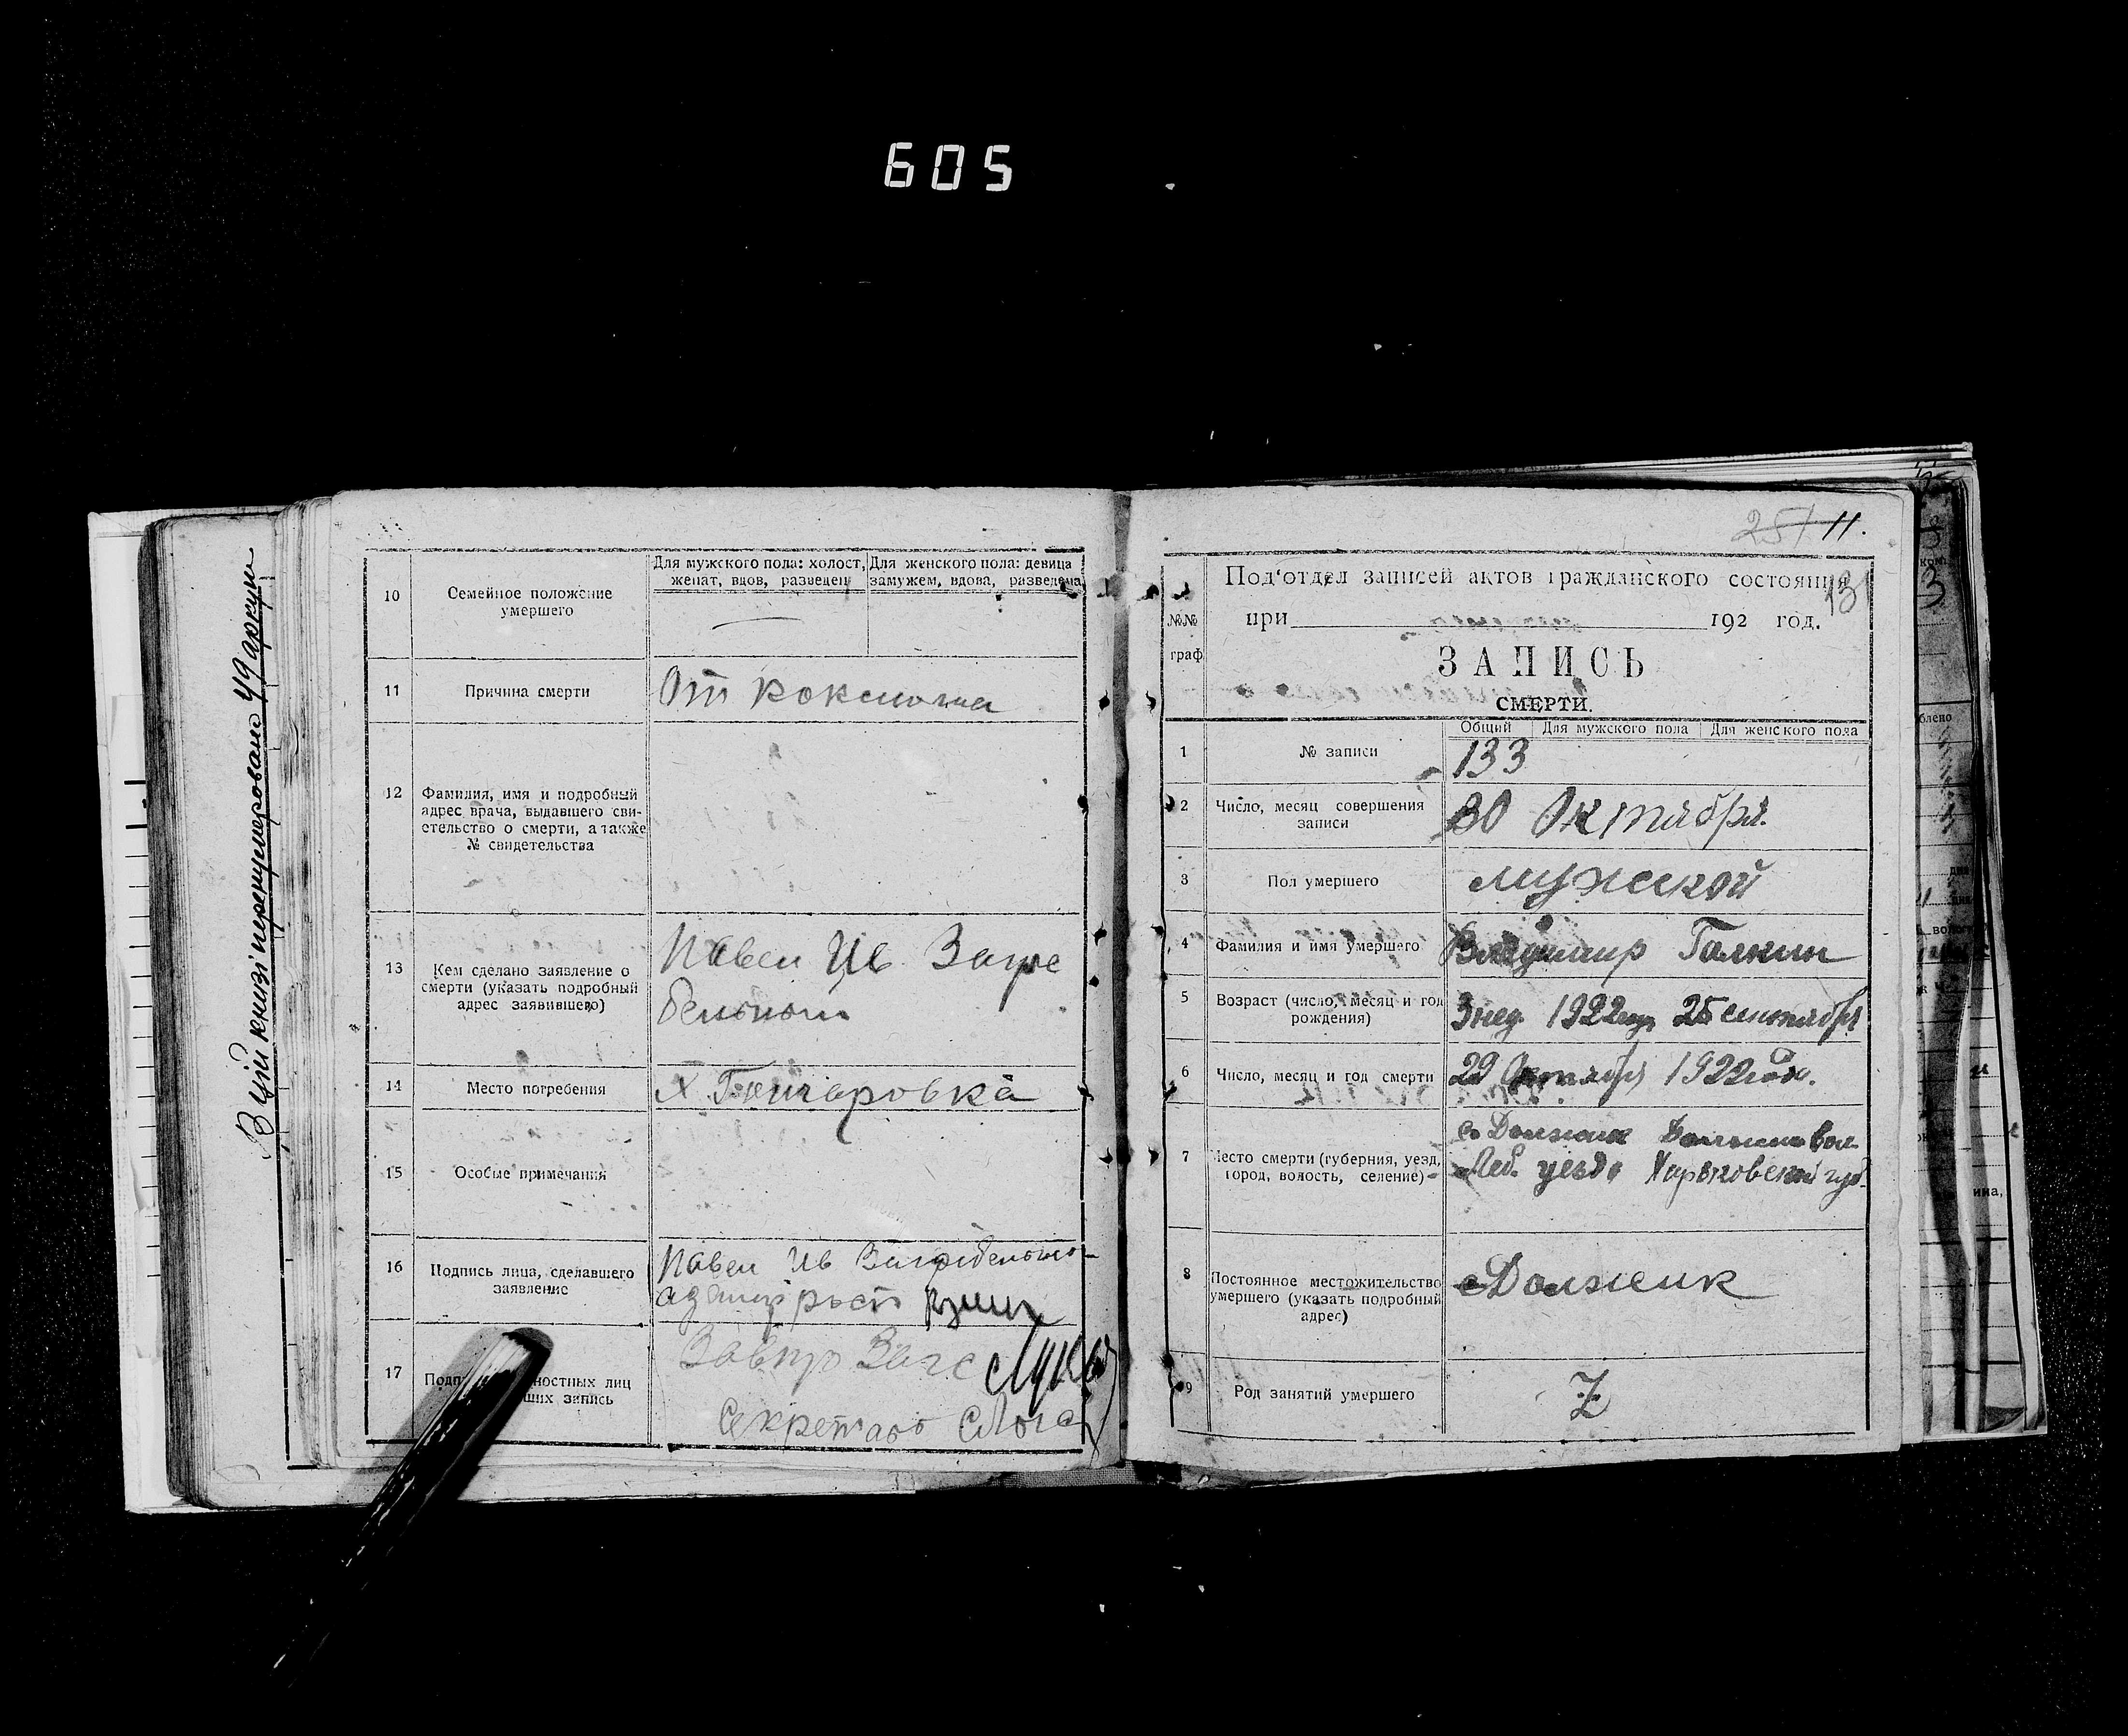 605
В цій книзі перенумеровано 49 аркуш
10
Семейное положение
умершего
Для мужского пола: холост,
женат, вдов, разведен
Для женского пола: девица
замужем, вдова, разведена
11
Причина смерти
От коклюша
12
Фамилия, имя и подробный
адрес врача, выдавшего сви-
етельство о смерти, а также
№ свидетельства
13
Кем сделано заявление о
смерти (указать подробный
адрес заявившего)
Павел Ив.
14
Место погребения
х. Гончаровка
15
Особые примечания
16
Подпись лица, сделавшего
заявление
Павел Ив
17
Подп ностных лиц
ших запись
Загс
Секретарь
251 11.
Под'отдел записей актов гражданского состояния
13
№№
граф.
при 192 год.
ЗАПИСЬ
СМЕРТИ.
Общий Для мужского пола Для женского пола
1
№ записи
133
2
Число, месяц совершения
записи
30 Октября.
3
Пол умершего
мужской
4
Фамилия и имя умершего
Владимир Галкин
5
Возраст (число, месяц и год
рождения)
3 нед. 1922 году 25 сентября
6
Число, месяц и год смерти
29 Октября 1922 года.
7
Место смерти (губерния, уезд,
город, волость, селение)
с. Должик вол.
Леб. уезда Харьковской губ.
8
Постоянное местожительство
умершего (указать подробный
адрес)
с Должик
9
Род занятий умершего
Z